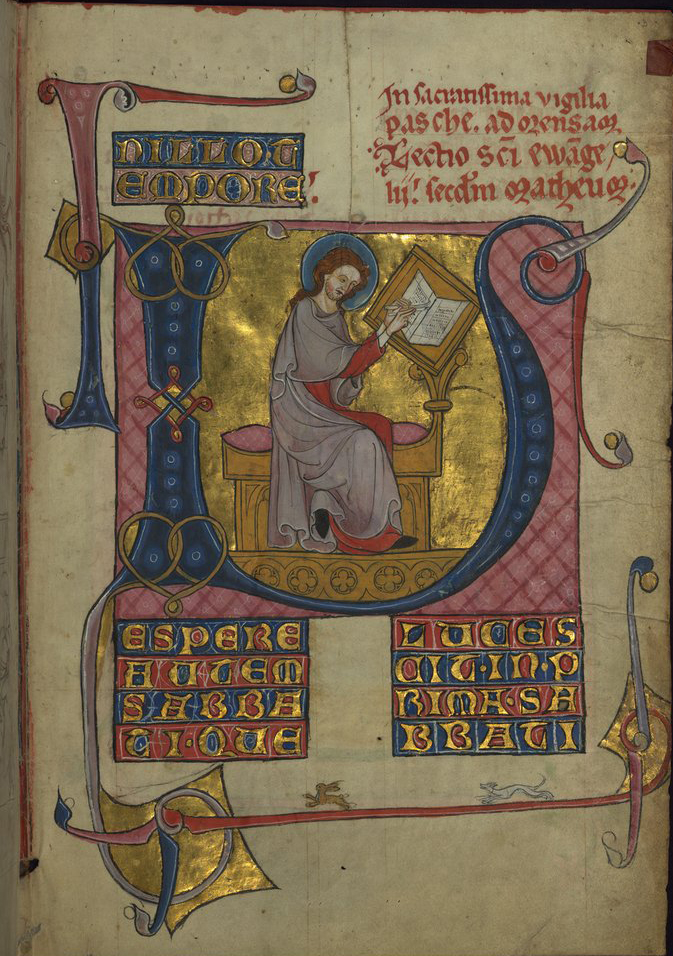 In sacratissima vigilia
pasche. ad mensam
Lectio sc̄i ewāge
lii! secdm matheum.
I
NILLOT
EMPORE!
V
ESPERE
AUTEM
SABBA
TI·QUE
LUCES
CIT·IN·P
RIMA·SA
BBATI